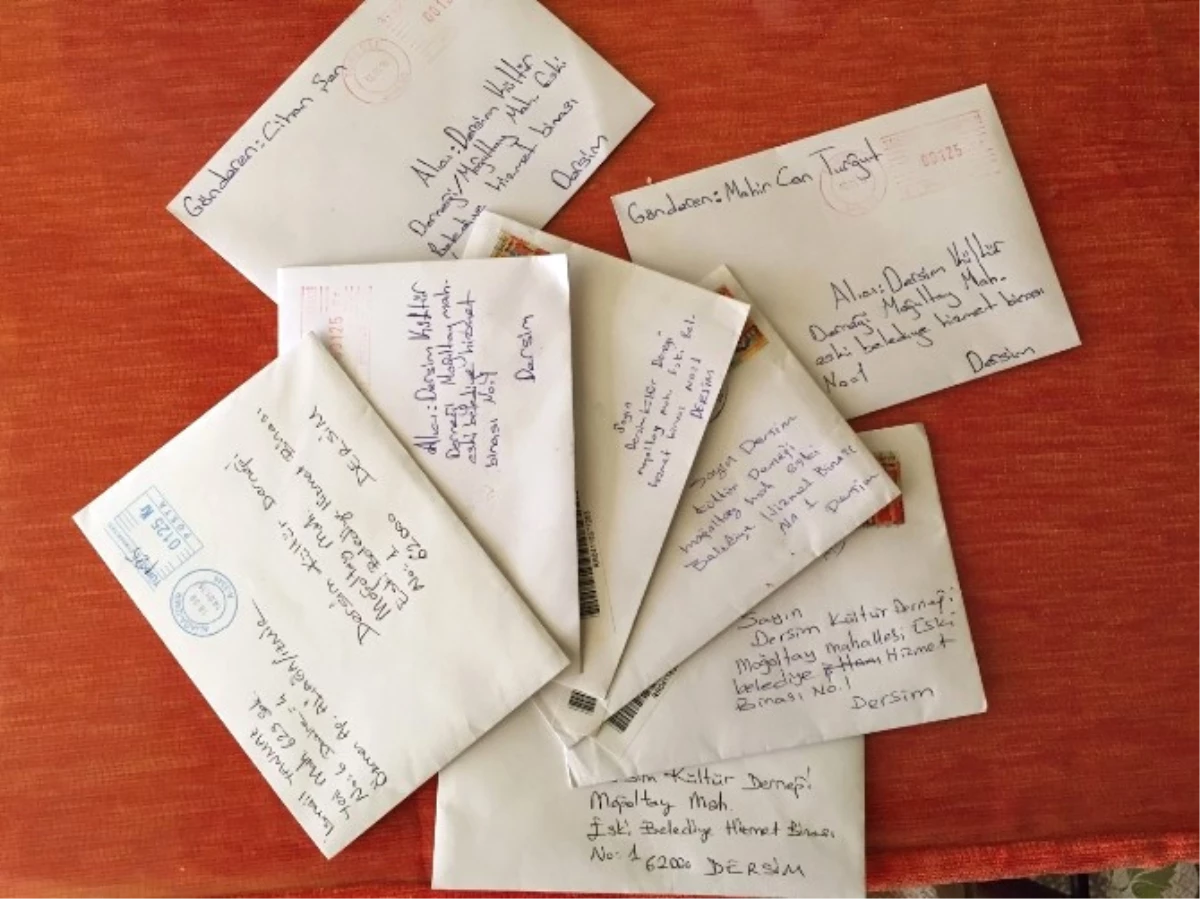 Gönderen: Cihan Şan
Alıcı: Dersim Kültür
Derneği/Moğultay Mah. Eski
Belediye hizmet binası
Dersim
Gönderen: Mahir Can Turgut
00125
Alıcı: Dersim Kültür
Derneği Moğultay Mah.
eski belediye hizmet binası
No:1 Dersim
Alıcı: Dersim Kültür
Derneği Moğultay mah.
eski belediye hizmet
binası No:1
Dersim
Sayın
Dersim Kültür Derneği
moğoltay mah. Eski Bel.
hizmet binası No:1
DERSİM
Sayın Dersim
kültür Derneği
moğoltay mah eski
Belediye Hizmet Binası
No 1 Dersim
Sayın
Dersim Kültür Derneği
Moğoltay mahallesi Eski
belediye Hizmet
Binası No.1
Dersim
Dersim Kültür Derneği
Moğoltay Mah.
Eski Belediye Hizmet Binası
No: 1
62000
DERSİM
0125 Kr
POSTA
İsmail
Yeni Mah. 629 Sok.
No: 6 Daire: 4
Ap. ALİAĞA/İZMİR
Dersim Kültür Derneği
Moğoltay Mah.
Eski Belediye Hizmet Binası
No: 1
62000
DERSİM